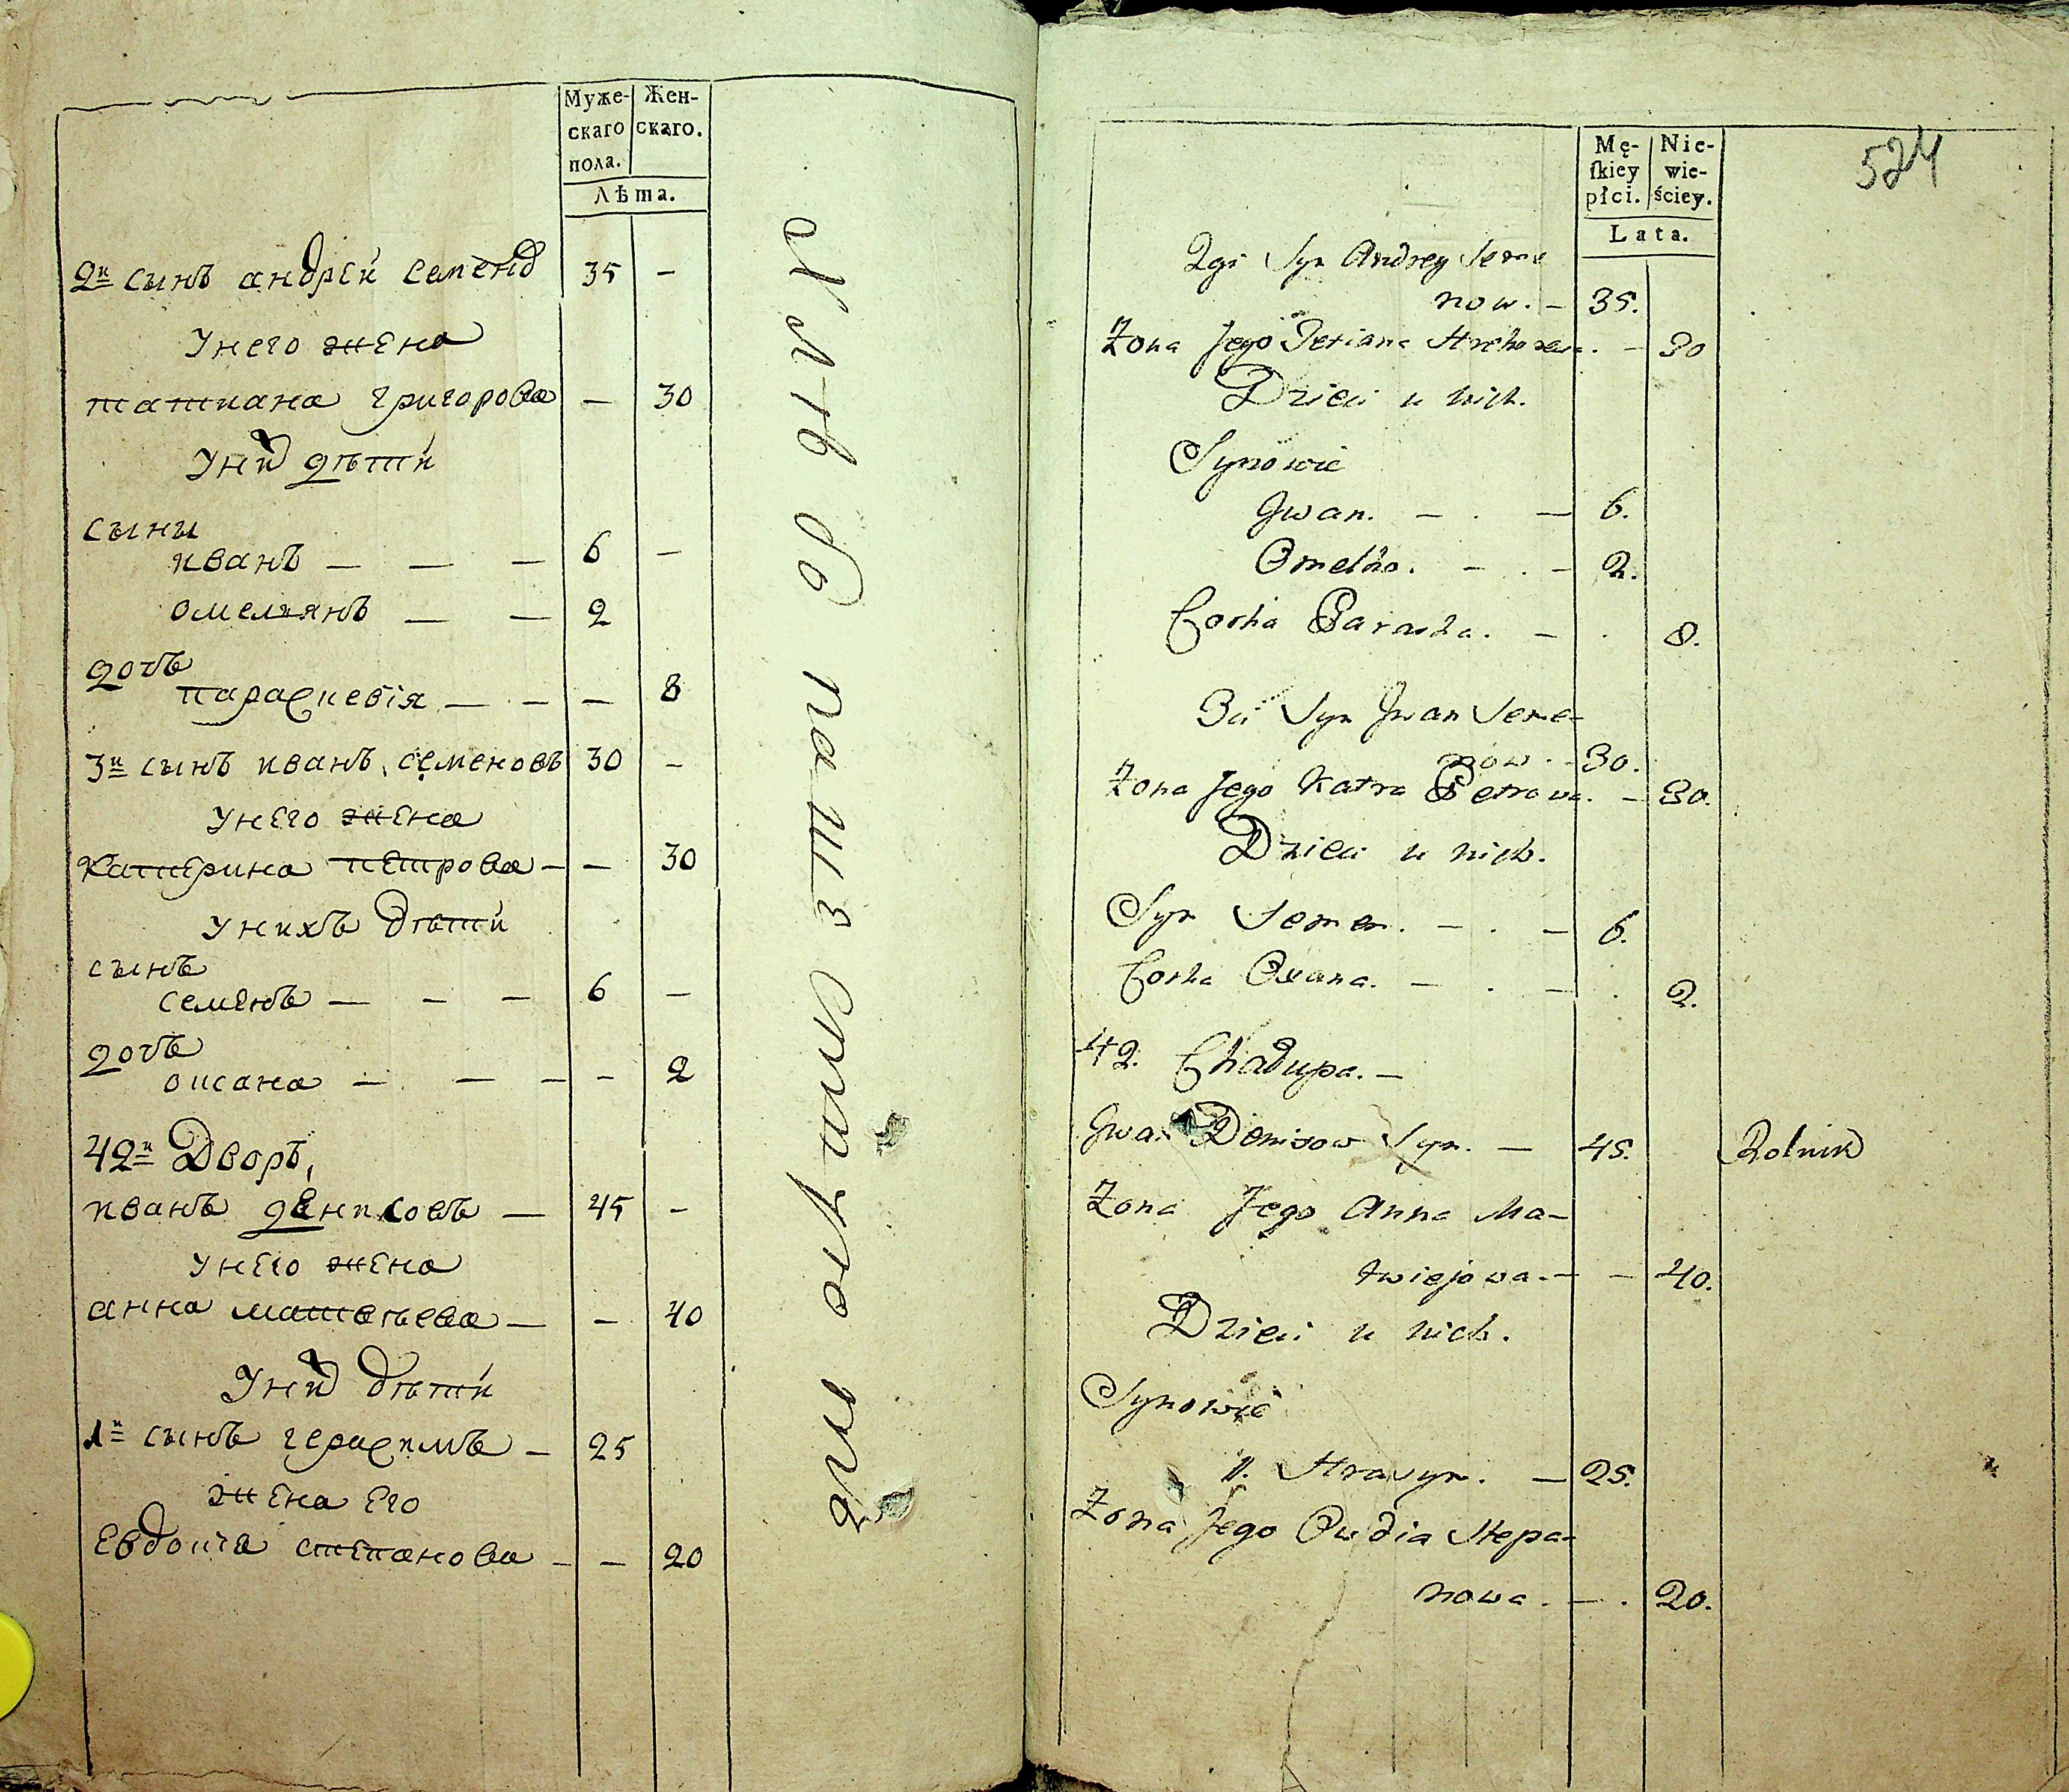 Муже-
скаго
пола.
Жен-
скаго.
Лѣта.
2й сынъ андрей семенов 35 –
Унего жена
татиана григорова – 30
Уних дѣти
сыны
иванъ — — — 6 –
омелиянъ — — 2
дочь
параскевія — – – 8
3й сынъ иванъ семеновъ 30 –
Унего жена
катерина петрова – – 30
Унихъ дѣти
сынъ
семенъ — – – 6 –
дочь
оксана — — – – 2
42й Дворъ,
иванъ денисовъ — 45 –
Унего жена
анна матвѣева — – 40
Уних дѣти
1й сынъ герасимъ – 25
жена его
Евдокиа степанова – – 20
Mę-
ſkiey
płci.
Nie-
wie-
ściey.
Lata.
524
2gi Syn Andrey Seme
now. – 35.
Zona Jego Tetiana – 30
Dzieci u nich.
Synowie
Jwan. – . — 6.
Omelko. – . – 2.
Corka Paraska. – . 8.
3ci Syn Jwan Seme-
now. – 30.
Zona Jego Katra Petrowa. – 30.
Dzieci u nich.
Syn Semen. – . – 6.
Corka Oxana. – . – . 2.
42. Chałupa. –
Jwan Denisow Syn. — 45. Rolnik
Zona Jego Anna Ma-
twiejowa. – – 40.
Dzieci u nich.
Synowie
1. Harasym. – 25.
Zona Jego Owdia Stepa-
nowa. – . 20.